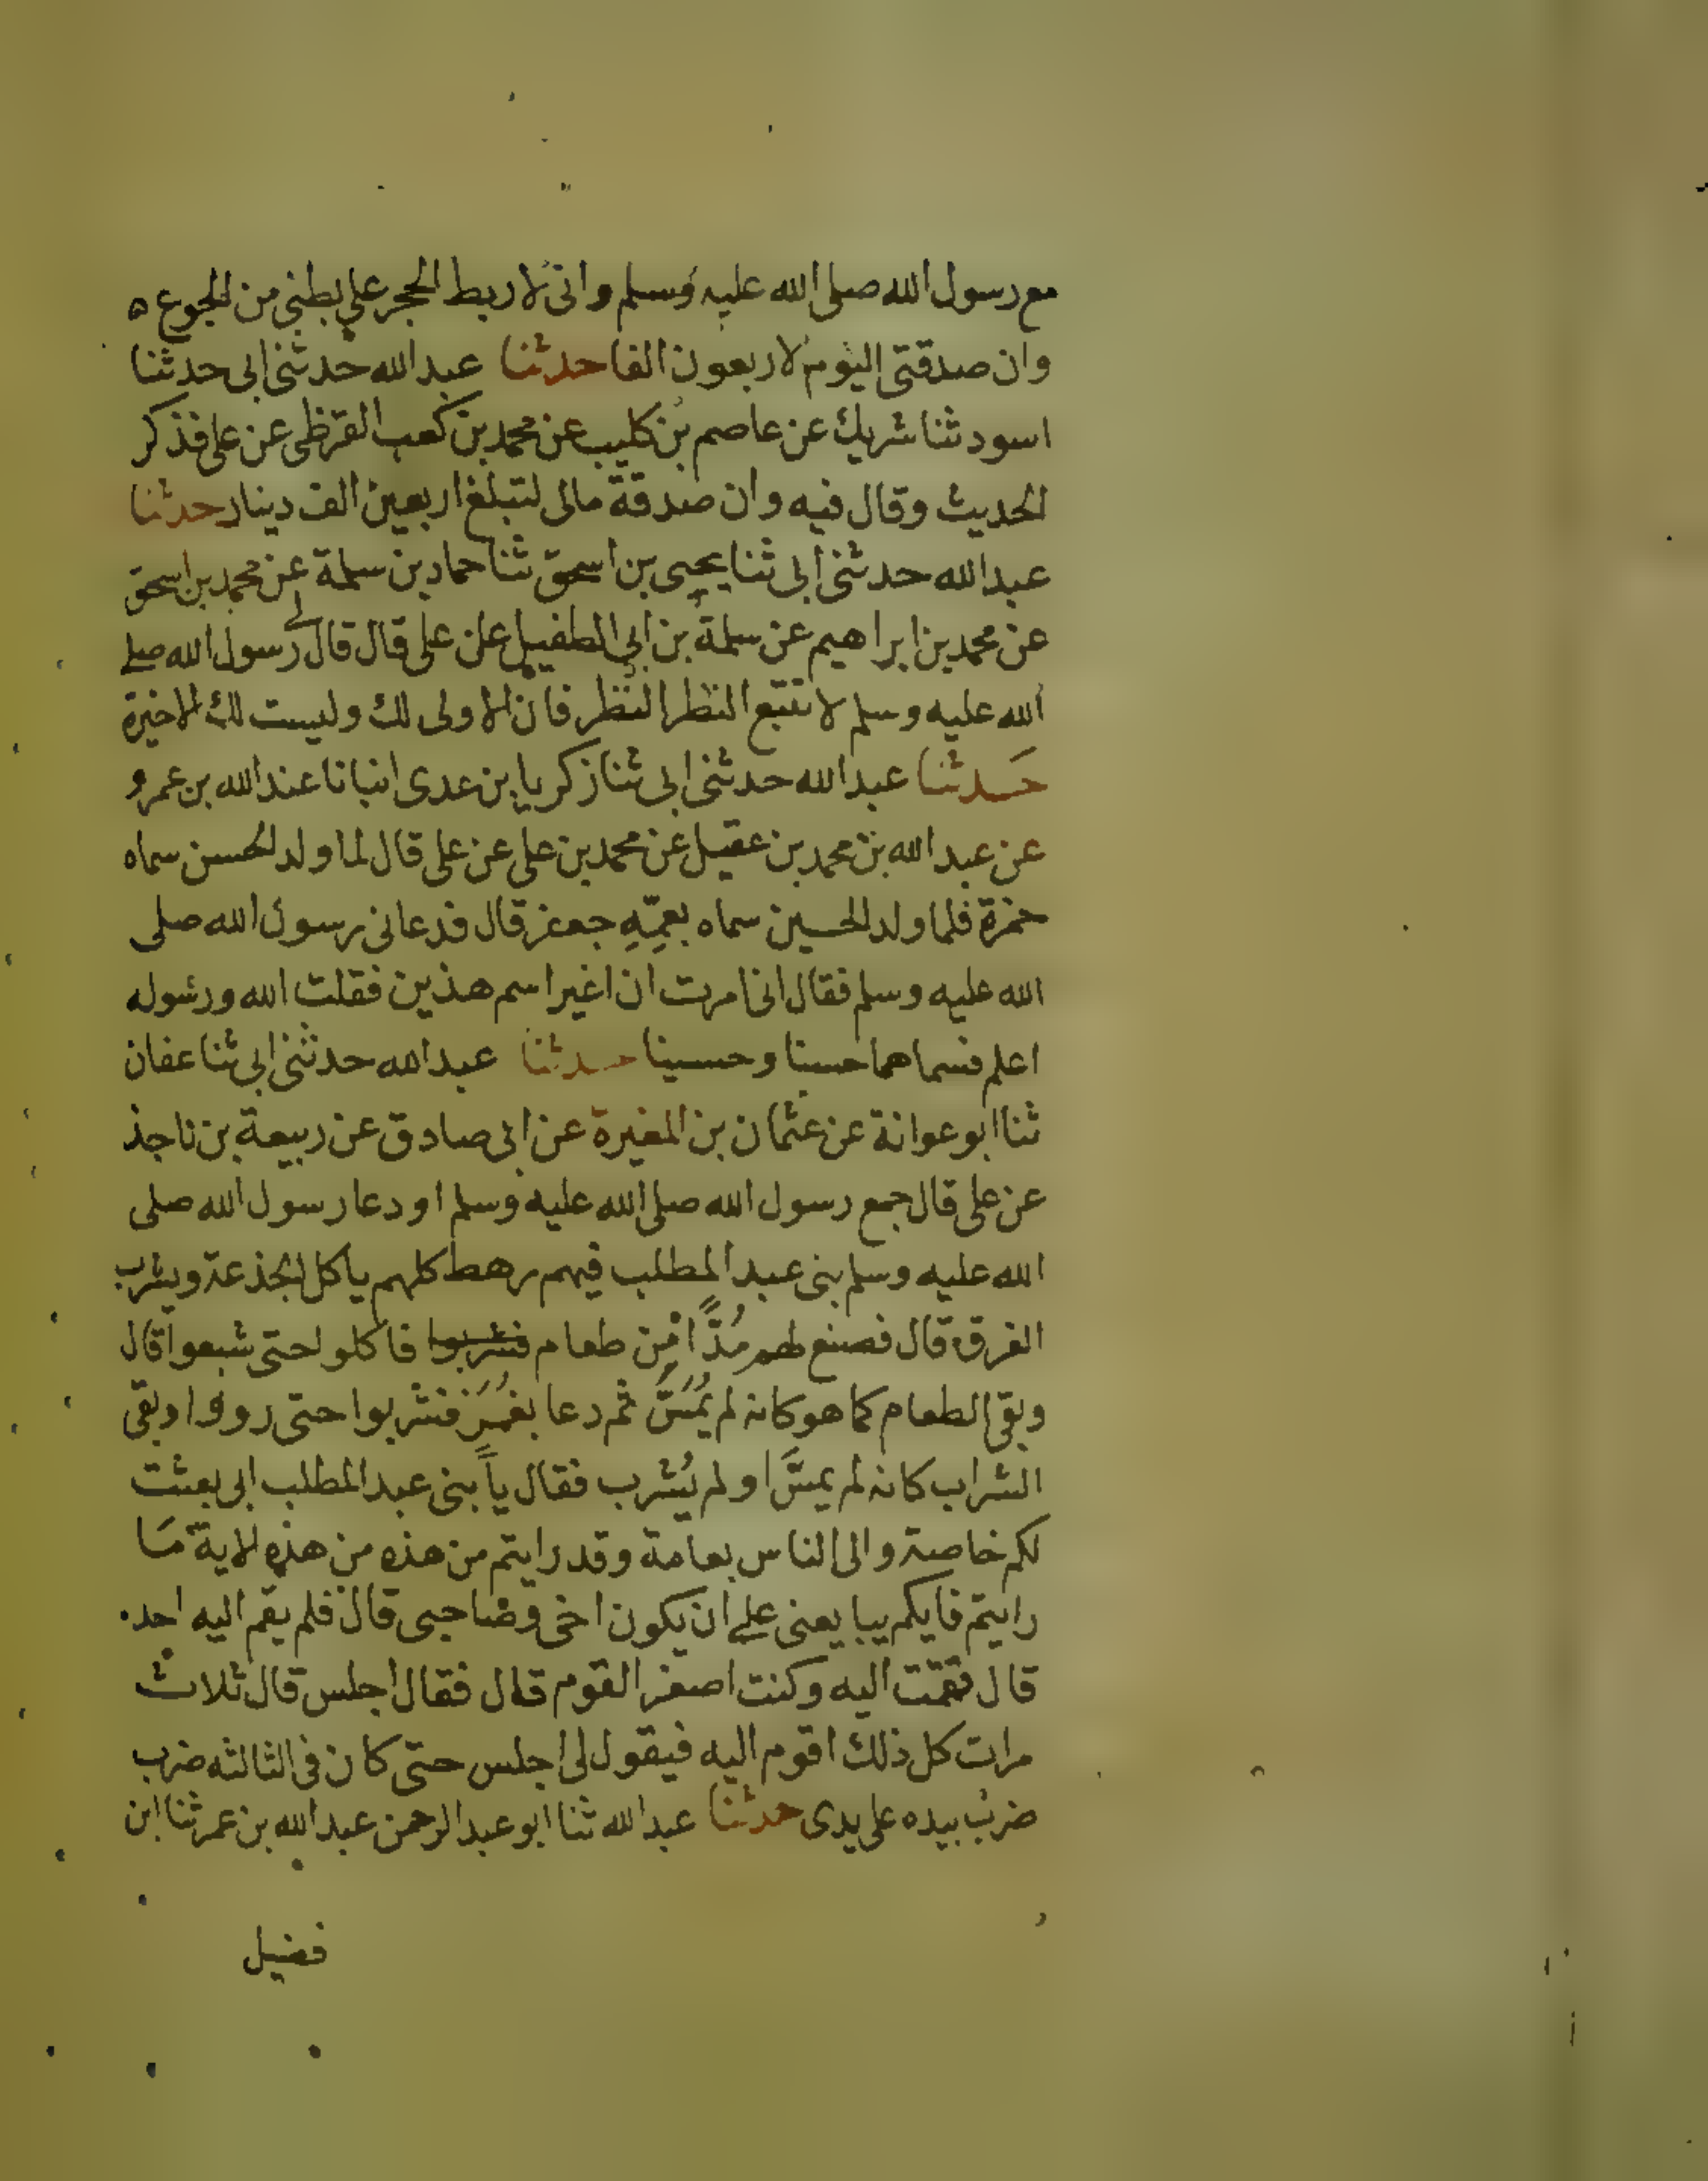 مع رسول الله صلى الله عليه وسلم وانى لاربط الحجر على بطنى من الجوع ه
وان صدقتى اليوم لاربعون الفا حدثنا عبد الله حدثنى ابى حدثنا
اسود ثنا شريك عن عاصم بن كليب عن محمد بن كعب القرظى عن على فذكر
الحديث وقال فيه وان صدقة مالى لتبلغ اربعين الف دينار حدثنا
عبد الله حدثنى ابى ثنا يحيى بن اسحق ثنا حماد بن سلمة عن محمد بن اسحق
عن محمد بن ابراهيم عن سلمة بن ابى الطفيل عن على قال قال لى رسول الله صلى
الله عليه وسلم لا تتبع النظر النظر فان الاولى لك وليست لك الاخيرة
حدثنا عبد الله حدثنى ابى ثنا زكريا بن عدى انبانا عبد الله بن عمرو
عن عبد الله بن محمد بن عقيل عن محمد بن على عن على قال لما ولد الحسن سماه
حمزة فلما ولد الحسين سماه بعمِّهِ جعفر قال فدعانى رسول الله صلى
الله عليه وسلم فقال انى امرت ان اغير اسم هذين فقلت الله ورسوله
اعلم فسماهما حسنا وحسينا حدثنا عبد الله حدثنى ابى ثنا عفان
ثنا ابو عوانة عن عثمان بن المغيرة عن ابى صادق عن ربيعة بن ناجذ
عن على قال جمع رسول الله صلى الله عليه وسلم او دعا رسول الله صلى
الله عليه وسلم بنى عبد المطلب فيهم رهط كلهم ياكل الجذعة ويشرب
الفرق قال فصنع لهم مُدًّا مِن طعام فشربوا فاكلوا حتى شبعوا قال
وبقى الطعام كما هو كانه لم يُمَسَّ ثم دعا بغُمَر فشربوا حتى رووا وبقى
الشراب كانه لم يمسَّ او لم يُشرب فقال يا بنى عبد المطلب انى بعثت
لكم خاصة والى الناس بعامة وقد رايتم من هذه من هذه الاية مَا
رايتم فايكم يبايعنى على ان يكون اخى وصاحبى قال فلم يقم اليه احد
قال فقمت اليه وكنت اصغر القوم قال فقال اجلس قال ثلاث
مرات كل ذلك اقوم اليه فيقول لى اجلس حتى كان فى الثالثه ضرب
ضرب بيده على يدى حدثنا عبد الله ثنا ابو عبد الرحمن عبد الله بن عمر ثنا ابن
فضيل